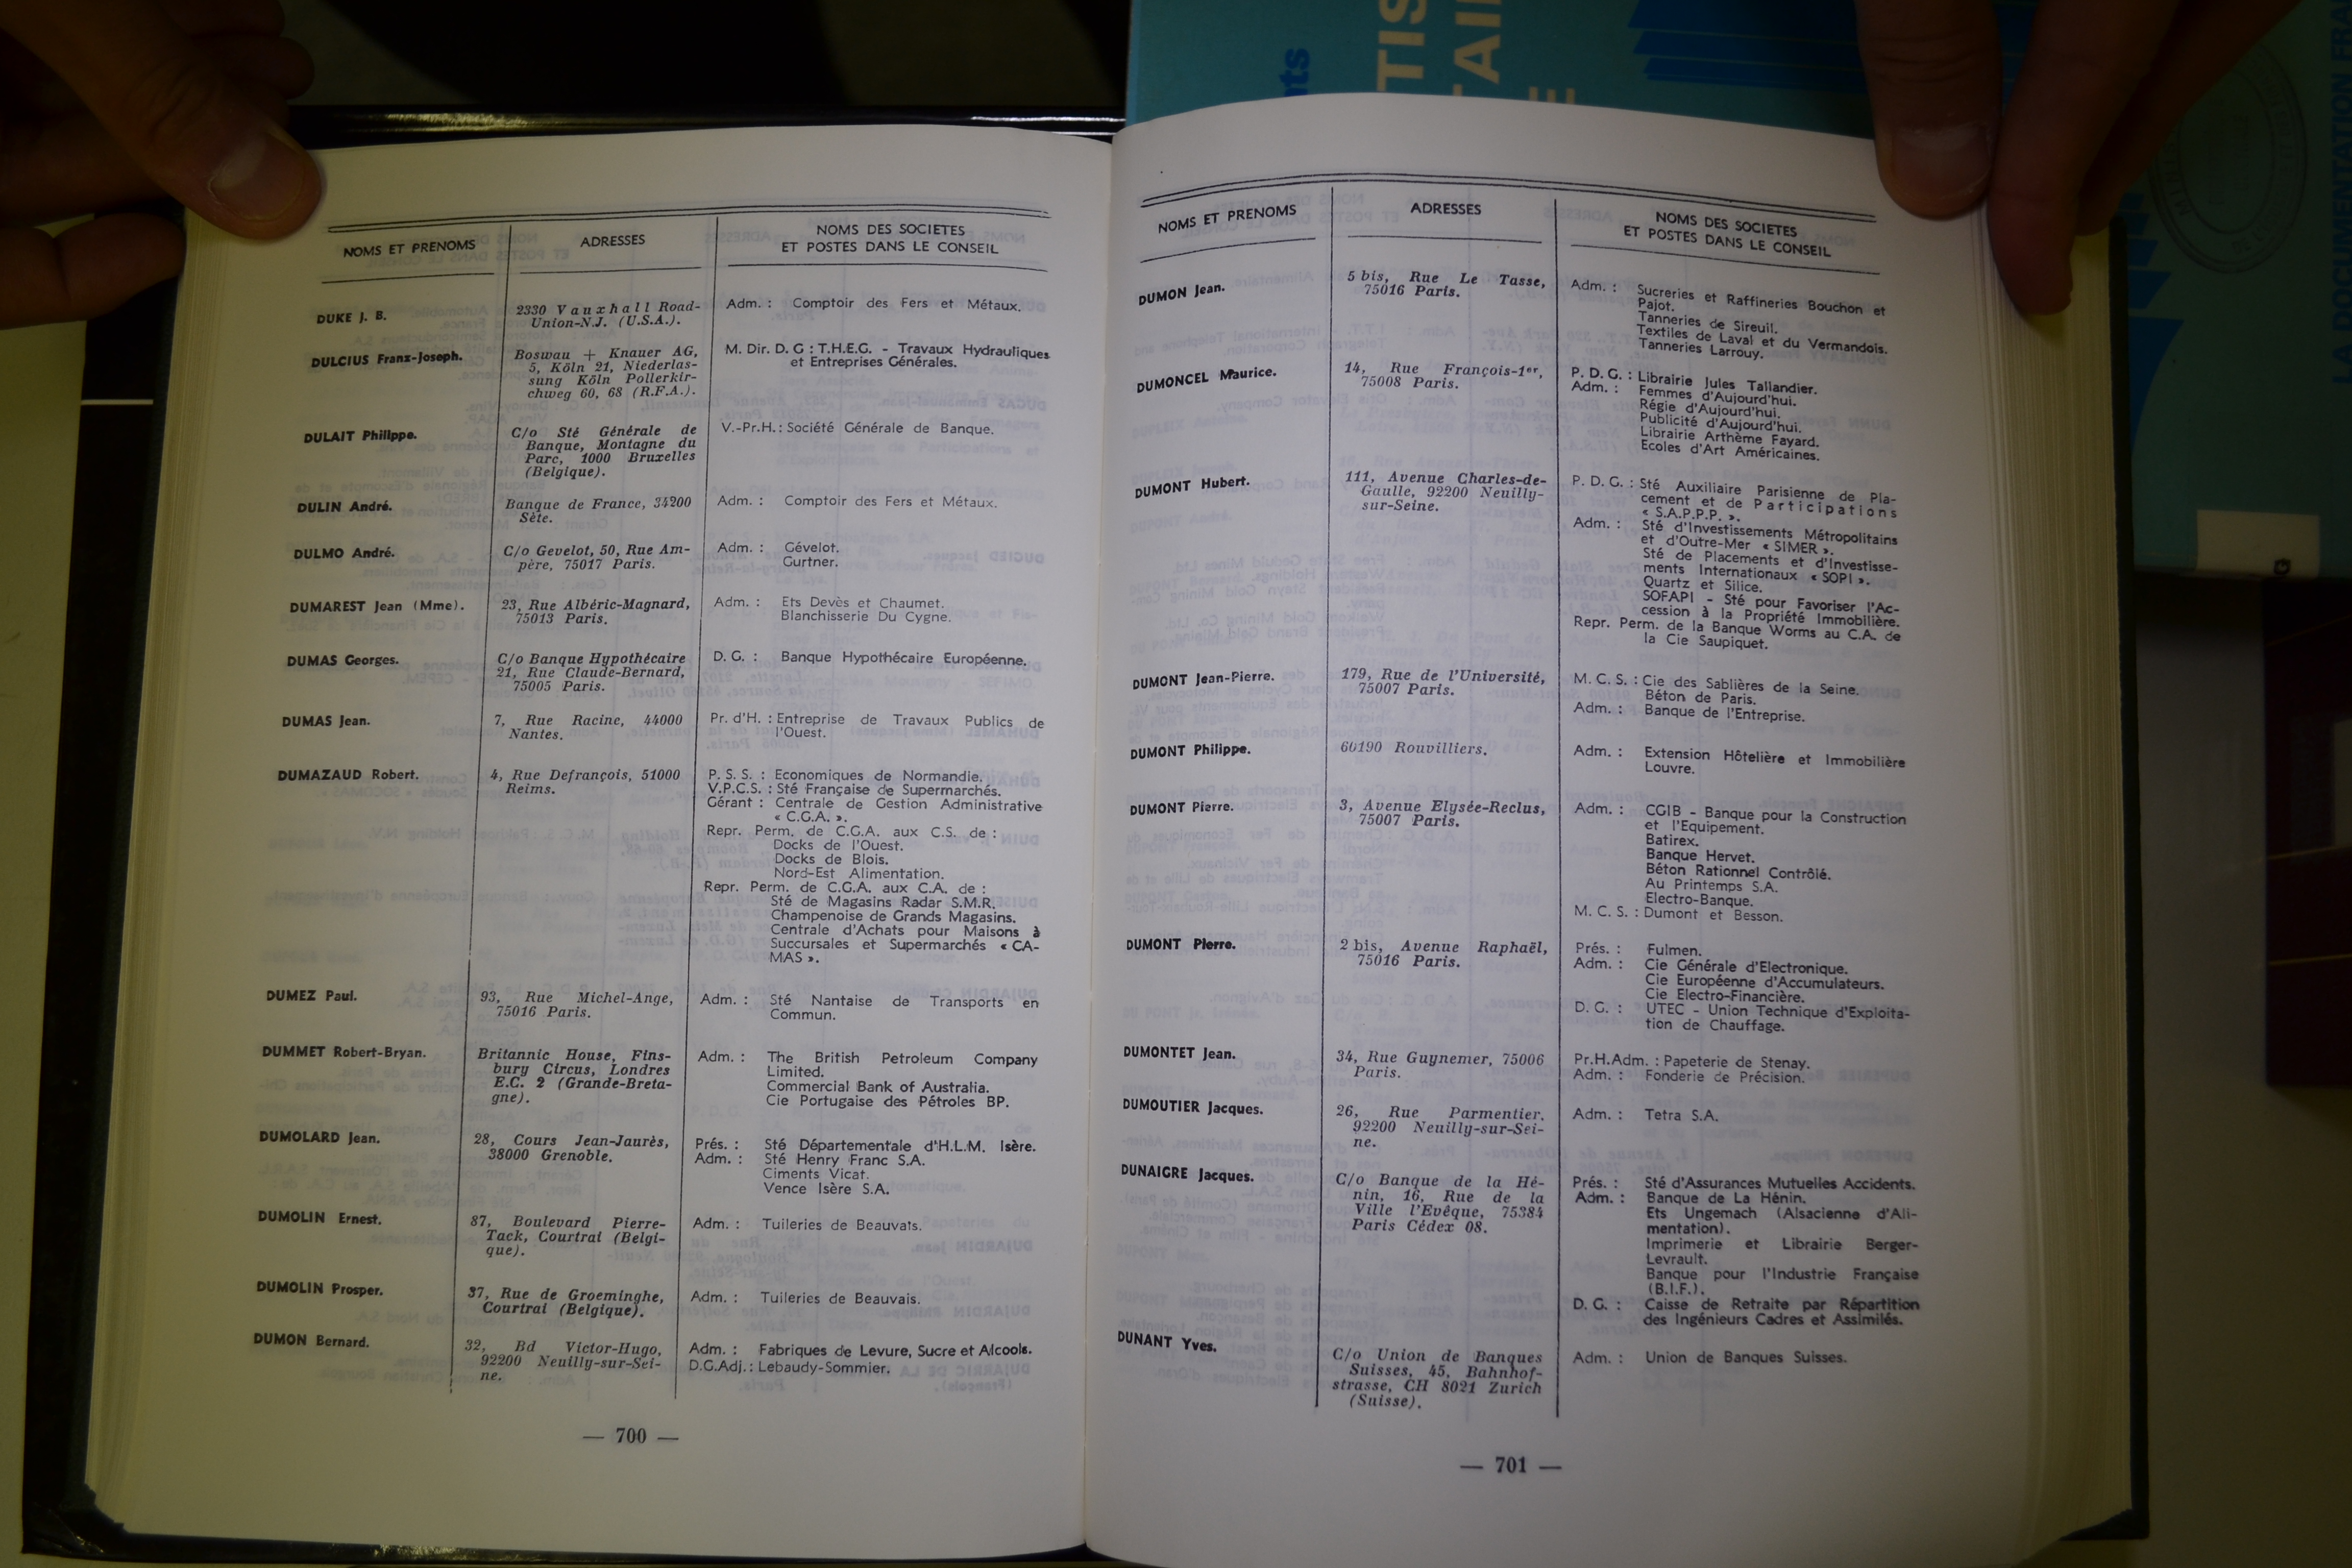 NOMS ET PRENOMS
ADRESSES
NOMS DES SOCIETES
ET POSTES DANS LE CONSEIL
DUKE J. B.
2330 Vauxhall Road-
Union-N.J. (U.S.A.).
Adm. : Comptoir des Fers et Métaux.
DULCIUS Franz-Joseph.
Boswau + Knauer AG,
5, Köln 21, Niederlas-
sung Köln Pollerkir-
chweg 60, 68 (R.F.A.).
M. Dir. D. G : T.H.E.G. - Travaux Hydrauliques
et Entreprises Générales.
DULAIT Philippe.
C/o Sté Générale de
Banque, Montagne du
Parc, 1000 Bruxelles
(Belgique).
V.-Pr.H. : Société Générale de Banque.
DULIN André.
Banque de France, 34200
Sète.
Adm. : Comptoir des Fers et Métaux.
DULMO André.
C/o Gevelot, 50, Rue Am-
père, 75017 Paris.
Adm. : Gévelot.
Gurtner.
DUMAREST Jean (Mme).
23, Rue Albéric-Magnard,
75013 Paris.
Adm. : Ets Devès et Chaumet.
Blanchisserie Du Cygne.
DUMAS Georges.
C/o Banque Hypothécaire
21, Rue Claude-Bernard,
75005 Paris.
D. G. : Banque Hypothécaire Européenne.
DUMAS Jean.
7, Rue Racine, 44000
Nantes.
Pr. d'H. : Entreprise de Travaux Publics de
l'Ouest.
DUMAZAUD Robert.
4, Rue Defrançois, 51000
Reims.
P. S. S. : Economiques de Normandie.
V.P.C.S. : Sté Française de Supermarchés.
Gérant : Centrale de Gestion Administrative
« C.G.A. ».
Repr. Perm. de C.G.A. aux C.S. de :
Docks de l'Ouest.
Docks de Blois.
Nord-Est Alimentation.
Repr. Perm. de C.G.A. aux C.A. de :
Sté de Magasins Radar S.M.R.
Champenoise de Grands Magasins.
Centrale d'Achats pour Maisons à
Succursales et Supermarchés « CA-
MAS ».
DUMEZ Paul.
93, Rue Michel-Ange,
75016 Paris.
Adm. : Sté Nantaise de Transports en
Commun.
DUMMET Robert-Bryan.
Britannic House, Fins-
bury Circus, Londres
E.C. 2 (Grande-Breta-
gne).
Adm. : The British Petroleum Company
Limited.
Commercial Bank of Australia.
Cie Portugaise des Pétroles BP.
DUMOLARD Jean.
28, Cours Jean-Jaurès,
38000 Grenoble.
Prés. : Sté Départementale d'H.L.M. Isère.
Adm. : Sté Henry Franc S.A.
Ciments Vicat.
Vence Isère S.A.
DUMOLIN Ernest.
87, Boulevard Pierre-
Tack, Courtrai (Belgi-
que).
Adm. : Tuileries de Beauvais.
DUMOLIN Prosper.
37, Rue de Groeminghe,
Courtrai (Belgique).
Adm. : Tuileries de Beauvais.
DUMON Bernard.
32, Bd Victor-Hugo,
92200 Neuilly-sur-Sei-
ne.
Adm. : Fabriques de Levure, Sucre et Alcools.
D.G.Adj. : Lebaudy-Sommier.
— 700 —
NOMS ET PRENOMS
ADRESSES
NOMS DES SOCIETES
ET POSTES DANS LE CONSEIL
DUMON Jean.
5 bis, Rue Le Tasse,
75016 Paris.
Adm. : Sucreries et Raffineries Bouchon et
Pajot.
Tanneries de Sireuil.
Textiles de Laval et du Vermandois.
Tanneries Larrouy.
DUMONCEL Maurice.
14, Rue François-1er,
75008 Paris.
P. D. G. : Librairie Jules Tallandier.
Adm. : Femmes d'Aujourd'hui.
Régie d'Aujourd'hui.
Publicité d'Aujourd'hui.
Librairie Arthème Fayard.
Ecoles d'Art Américaines.
DUMONT Hubert.
111, Avenue Charles-de-
Gaulle, 92200 Neuilly-
sur-Seine.
P. D. G. : Sté Auxiliaire Parisienne de Pla-
cement et de Participations
« S.A.P.P.P. ».
Adm. : Sté d'Investissements Métropolitains
et d'Outre-Mer « SIMER ».
Sté de Placements et d'Investisse-
ments Internationaux « SOPI ».
Quartz et Silice.
SOFAPI - Sté pour Favoriser l'Ac-
cession à la Propriété Immobilière.
Repr. Perm. de la Banque Worms au C.A. de
la Cie Saupiquet.
DUMONT Jean-Pierre.
179, Rue de l'Université,
75007 Paris.
M. C. S. : Cie des Sablières de la Seine.
Béton de Paris.
Adm. : Banque de l'Entreprise.
DUMONT Philippe.
60190 Rouvilliers.
Adm. : Extension Hôtelière et Immobilière
Louvre.
DUMONT Pierre.
3, Avenue Elysée-Reclus,
75007 Paris.
Adm. : CGIB - Banque pour la Construction
et l'Equipement.
Batirex.
Banque Hervet.
Béton Rationnel Contrôlé.
Au Printemps S.A.
Electro-Banque.
M. C. S. : Dumont et Besson.
DUMONT Pierre.
2 bis, Avenue Raphaël,
75016 Paris.
Prés. : Fulmen.
Adm. : Cie Générale d'Electronique.
Cie Européenne d'Accumulateurs.
Cie Electro-Financière.
D. G. : UTEC - Union Technique d'Exploita-
tion de Chauffage.
DUMONTET Jean.
34, Rue Guynemer, 75006
Paris.
Pr.H.Adm. : Papeterie de Stenay.
Adm. : Fonderie de Précision.
DUMOUTIER Jacques.
26, Rue Parmentier,
92200 Neuilly-sur-Sei-
ne.
Adm. : Tetra S.A.
DUNAIGRE Jacques.
C/o Banque de la Hé-
nin, 16, Rue de la
Ville l'Evêque, 75384
Paris Cédex 08.
Prés. : Sté d'Assurances Mutuelles Accidents.
Adm. : Banque de La Hénin.
Ets Ungemach (Alsacienne d'Ali-
mentation).
Imprimerie et Librairie Berger-
Levrault.
Banque pour l'Industrie Française
(B.I.F.).
D. G. : Caisse de Retraite par Répartition
des Ingénieurs Cadres et Assimilés.
DUNANT Yves.
C/o Union de Banques
Suisses, 45, Bahnhof-
strasse, CH 8021 Zurich
(Suisse).
Adm. : Union de Banques Suisses.
— 701 —